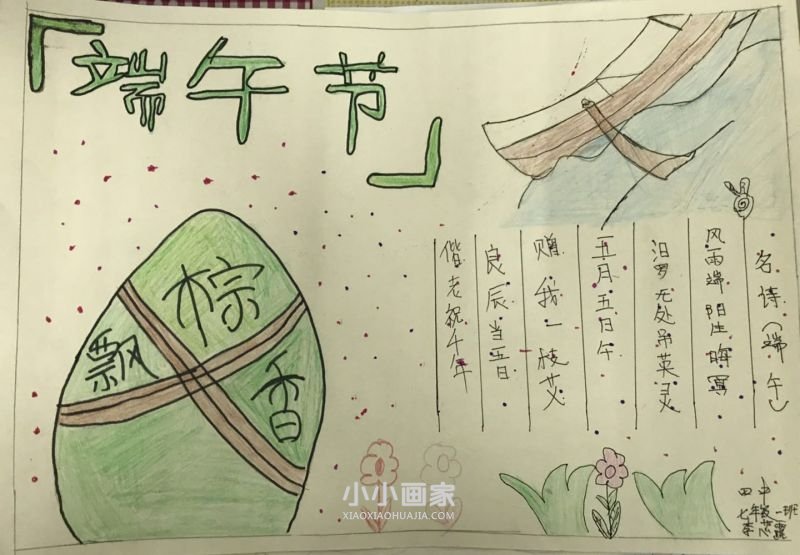 「端午节」
棕飘香
名诗(端午)
风雨端阳生晦冥
汨罗无处吊英灵
五月五日午
赠我一枝艾
良辰当五日
偕老祝千年
小小画家
XIAOXIAOHUAJIA.COM
四中
七年级一班